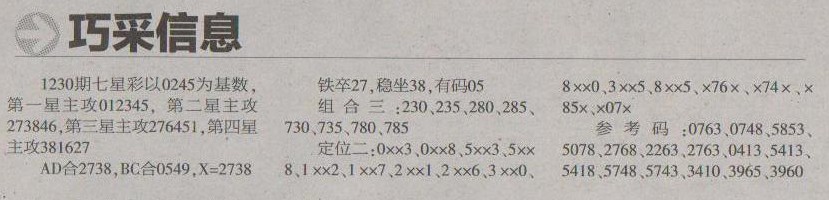 巧采信息
1230期七星彩以0245为基数,
第一星主攻012345, 第二星主攻
273846,第三星主攻276451,第四星
主攻381627
AD合2738,BC合0549,X=2738
铁卒27,稳坐38,有码05
组合三:230、235、280、285、
730、735、780、785
定位二:0××3、0××8、5××3、5××
8、1××2、1××7、2××1、2××6、3××0、
8××0、3××5、8××5、×76×、×74×、×
85×、×07×
参考码:0763、0748、5853、
5078、2768、2263、2763、0413、5413、
5418、5748、5743、3410、3965、3960